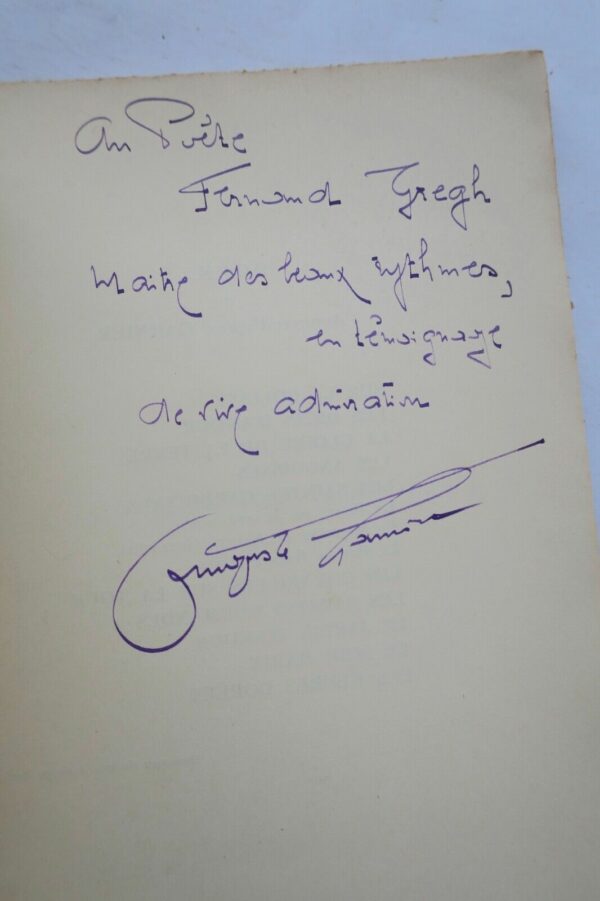 Au Poète
Fernand Gregh
Maitre des beaux rythmes,
en témoignage
de vive admiration
Auguste